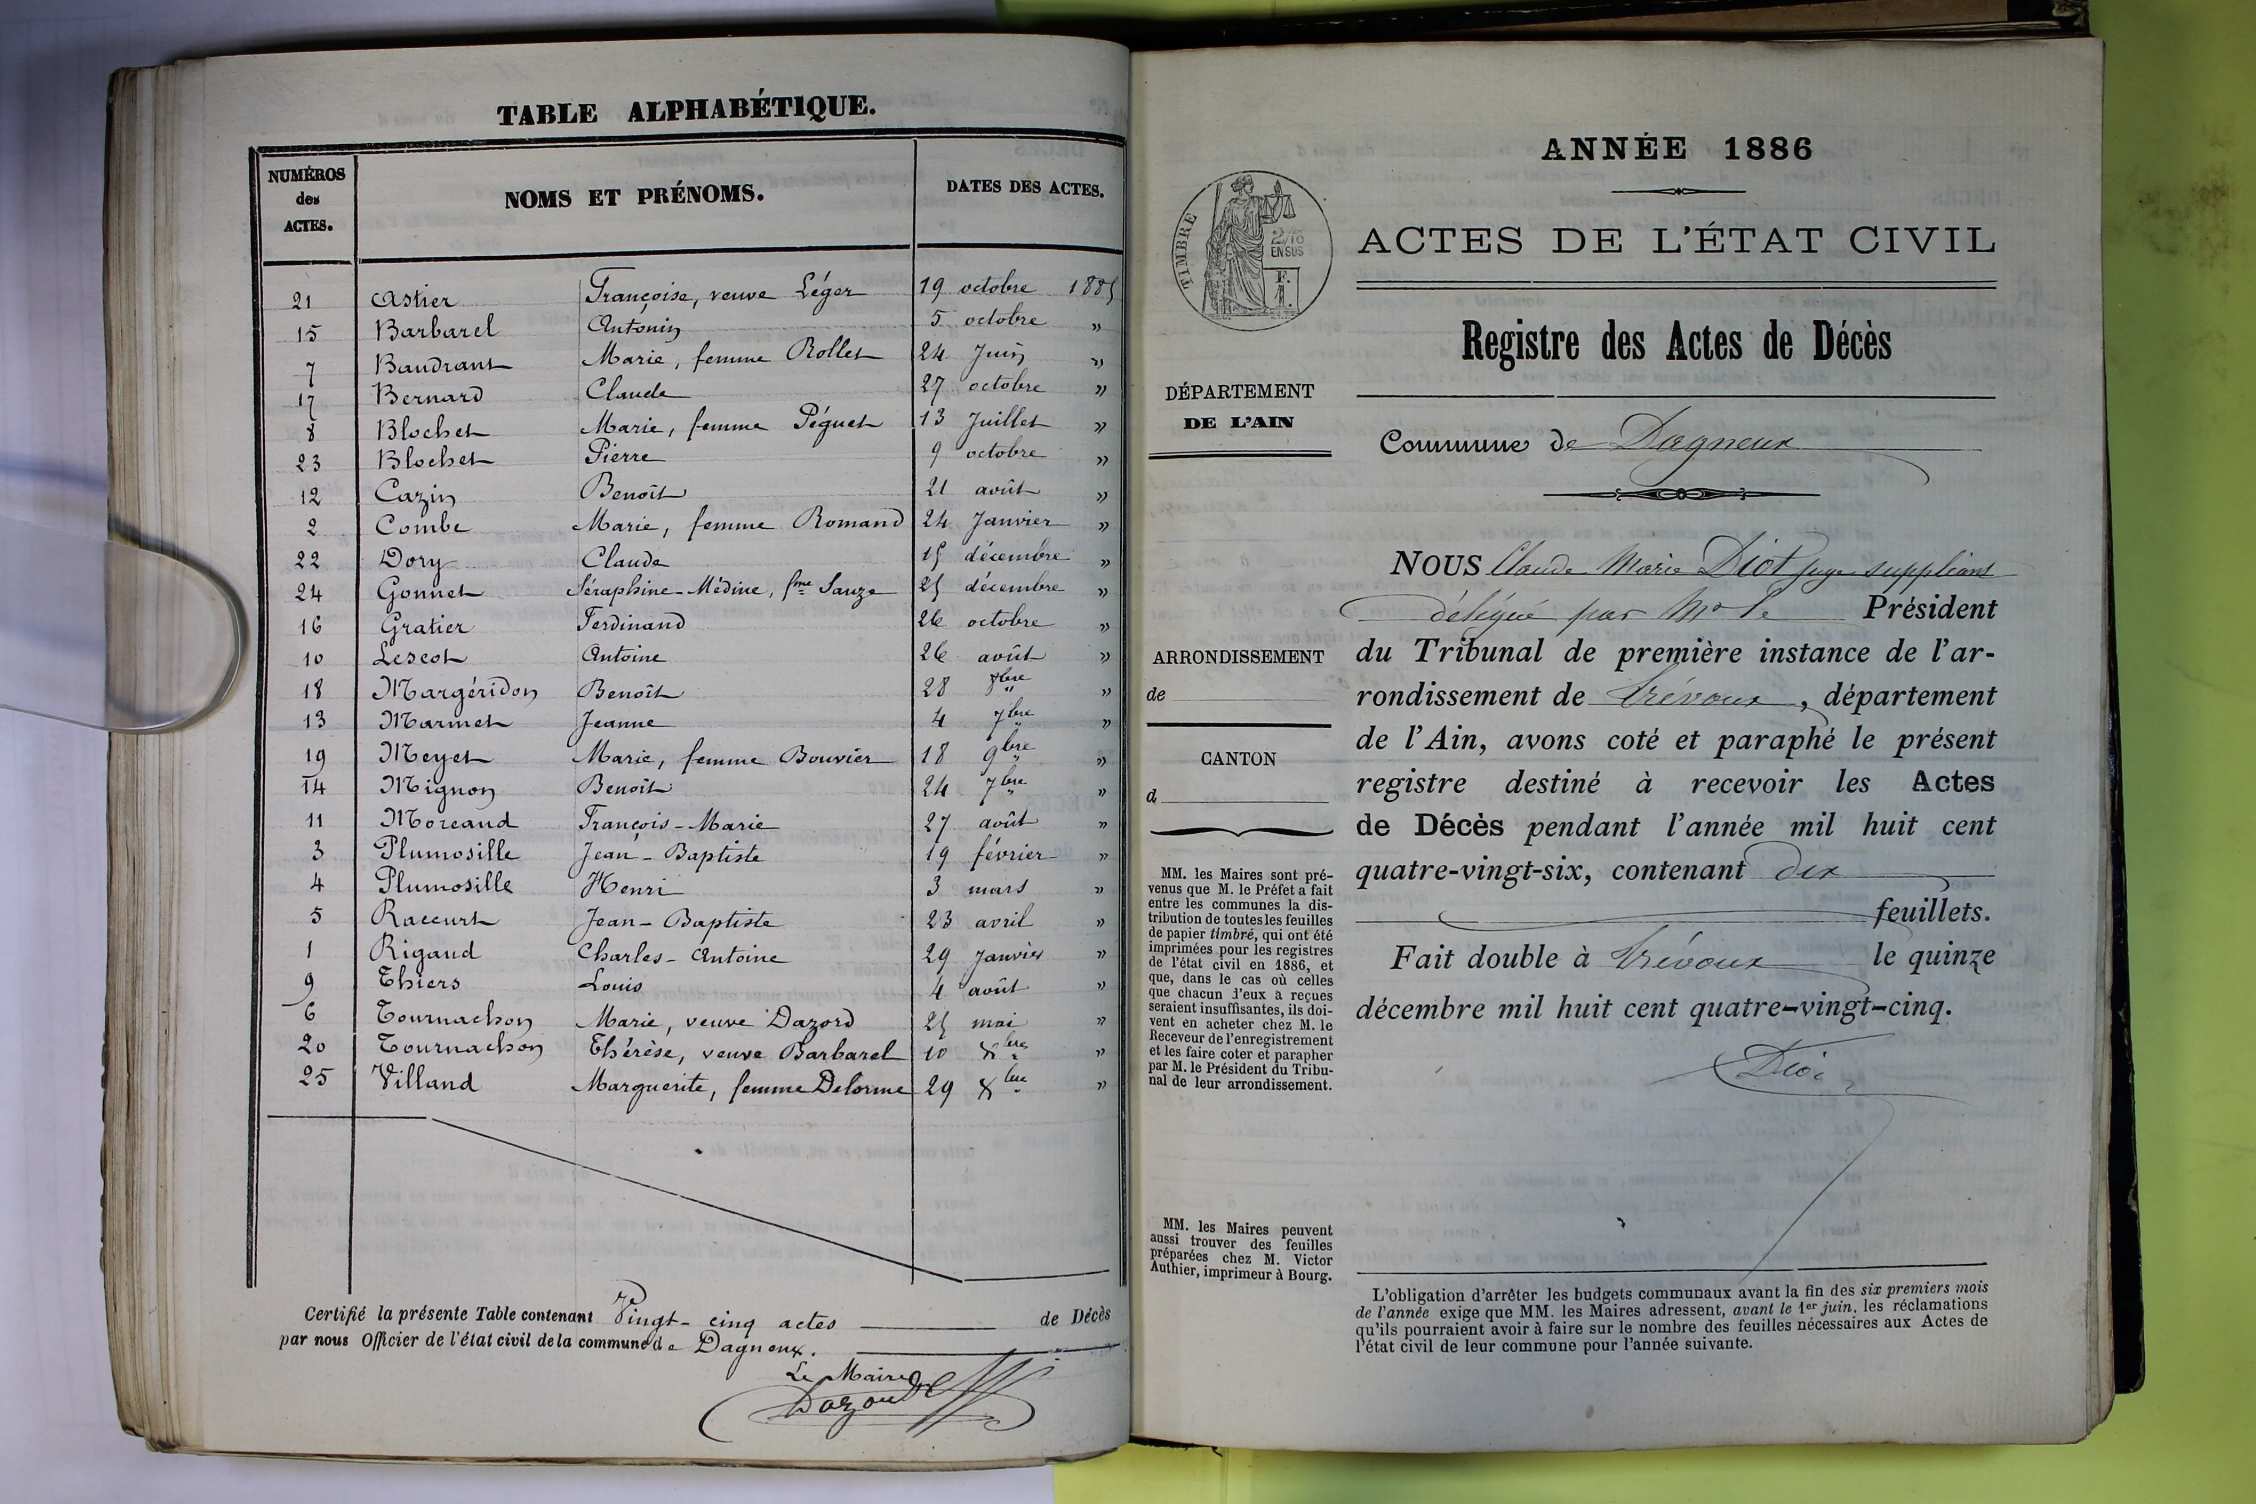 TABLE ALPHABÉTIQUE.
NUMÉROS des ACTES. NOMS ET PRÉNOMS. DATES DES ACTES.
21 Astier Françoise, veuve Léger 19 octobre 1885
15 Barbarel Antonin 5 octobre "
7 Baudrant Marie, femme Rollet 24 Juin "
17 Bernard Claude 27 octobre "
8 Blochet Marie, femme Péguet 13 Juillet "
23 Blochet Pierre 9 octobre "
12 Cazin Benoît 21 août "
2 Combe Marie, femme Romand 24 Janvier "
22 Dory Claude 15 décembre "
24 Gonnet Séraphine-Médine, fme Sauze 25 décembre "
16 Gratier Ferdinand 26 octobre "
10 Lescot Antoine 26 août "
18 Margéridon Benoît 28 8bre "
13 Marmet Jeanne 4 7bre "
19 Meyet Marie, femme Bouvier 18 9bre "
14 Mignon Benoît 24 7bre "
11 Moreaud François-Marie 27 août "
3 Plumosille Jean-Baptiste 19 février "
4 Plumosille Henri 3 mars "
5 Raccurt Jean-Baptiste 23 avril "
1 Rigaud Charles-Antoine 29 Janvier "
9 Thiers Louis 4 août "
6 Tournachon Marie, veuve Dazord 25 mai "
20 Tournachon Thérèse, veuve Barbarel 10 Xbre "
25 Villand Marguerite, femme Delorme 29 Xbre "
Certifié la présente Table contenant Vingt-cinq actes de Décès
par nous Officier de l'état civil de la commune de Dagneux.
Le Maire
Dazord
ANNÉE 1886
TIMBRE
2/10
EN SUS
F.
1.
ACTES DE L'ÉTAT CIVIL
Registre des Actes de Décès
DÉPARTEMENT
DE L'AIN
Commune de Dagneux
NOUS Claude Marie Diot juge suppléant
délégué par Mr le Président
du Tribunal de première instance de l'ar-
rondissement de Trévoux, département
de l'Ain, avons coté et paraphé le présent
registre destiné à recevoir les Actes
de Décès pendant l'année mil huit cent
quatre-vingt-six, contenant dix
feuillets.
Fait double à Trévoux le quinze
décembre mil huit cent quatre-vingt-cinq.
Diot
ARRONDISSEMENT
de
CANTON
d
MM. les Maires sont pré-
venus que M. le Préfet a fait
entre les communes la dis-
tribution de toutes les feuilles
de papier timbré, qui ont été
imprimées pour les registres
de l'état civil en 1886, et
que, dans le cas où celles
que chacun d'eux a reçues
seraient insuffisantes, ils doi-
vent en acheter chez M. le
Receveur de l'enregistrement
et les faire coter et parapher
par M. le Président du Tribu-
nal de leur arrondissement.
MM. les Maires peuvent
aussi trouver des feuilles
préparées chez M. Victor
Authier, imprimeur à Bourg.
L'obligation d'arrêter les budgets communaux avant la fin des six premiers mois
de l'année exige que MM. les Maires adressent, avant le 1er juin, les réclamations
qu'ils pourraient avoir à faire sur le nombre des feuilles nécessaires aux Actes de
l'état civil de leur commune pour l'année suivante.